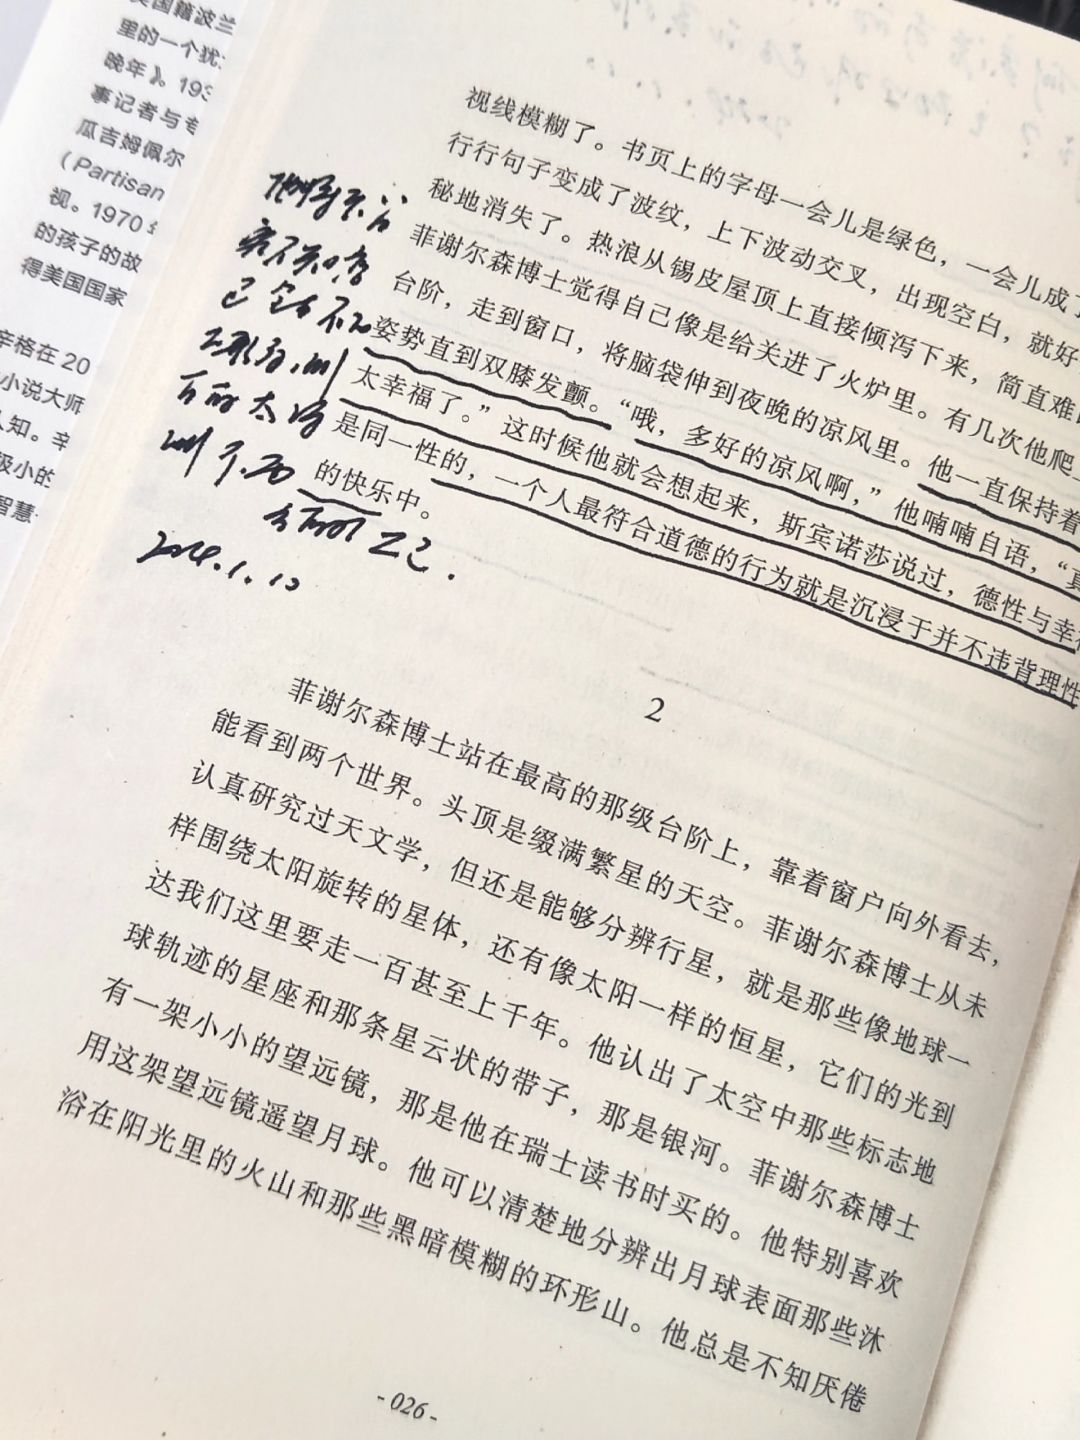 美国籍波兰
里的一个犹
晚年》。193
事记者与专
瓜吉姆佩尔
（Partisan
视。1970
的孩子的故
得美国国家
辛格在 20
小说大师
人知。辛
级小的
智慧
视线模糊了。书页上的字母一会儿是绿色，一会儿成了
行行句子变成了波纹，上下波动交叉，出现空白，就好
秘地消失了。热浪从锡皮屋顶上直接倾泻下来，简直难
菲谢尔森博士觉得自己像是给关进了火炉里。有几次他爬
台阶，走到窗口，将脑袋伸到夜晚的凉风里。他一直保持着
姿势直到双膝发颤。“哦，多好的凉风啊，”他喃喃自语，“真
太幸福了。”这时候他就会想起来，斯宾诺莎说过，德性与幸福
是同一性的，一个人最符合道德的行为就是沉浸于并不违背理性
的快乐中。
2024.1.10
2
菲谢尔森博士站在最高的那级台阶上，靠着窗户向外看去，
能看到两个世界。头顶是缀满繁星的天空。菲谢尔森博士从未
认真研究过天文学，但还是能够分辨行星，就是那些像地球一
样围绕太阳旋转的星体，还有像太阳一样的恒星，它们的光到
达我们这里要走一百甚至上千年。他认出了太空中那些标志地
球轨迹的星座和那条星云状的带子，那是银河。菲谢尔森博士
有一架小小的望远镜，那是他在瑞士读书时买的。他特别喜欢
用这架望远镜遥望月球。他可以清楚地分辨出月球表面那些沐
浴在阳光里的火山和那些黑暗模糊的环形山。他总是不知厌倦
- 026 -